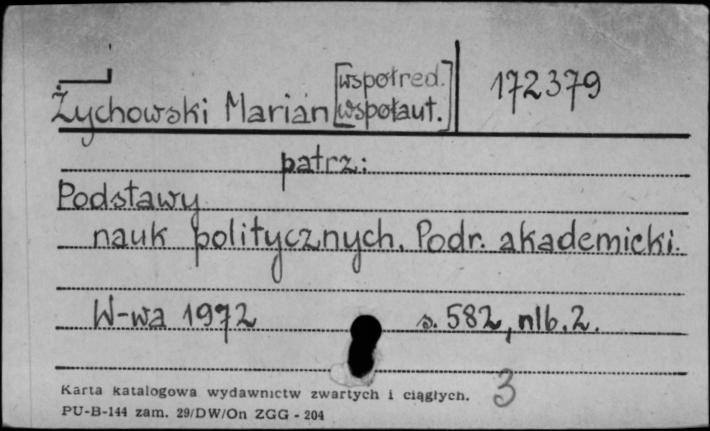 [współred. 172379
Żychowski Marian współaut.]
patrz:
Podstawy
nauk politycznych. Podr. akademicki.
W-wa 1972 s. 582, nlb. 2.
3
Karta katalogowa wydawnictw zwartych i ciągłych.
PU-B-144 zam. 29/DW/On ZGG - 204